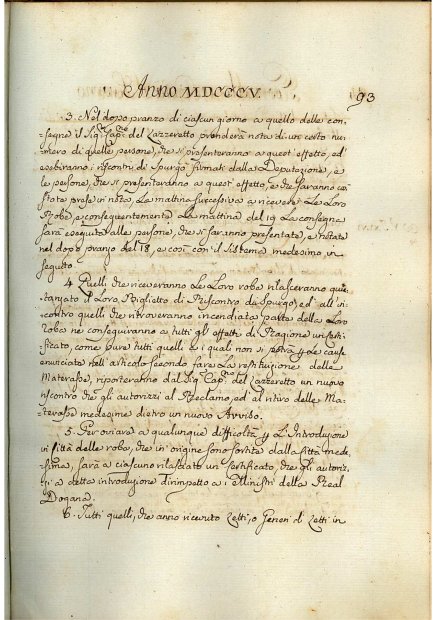 Anno MDCCCV.
93
3. Nel dopo pranzo di ciascun giorno a quello delle con-
=segne il Sigr. Capno. del Lazzeretto prenderà nota di un certo nu-
mero di quelle persone, che si presenteranno a quest' effetto, ed
esibiranno i riscontri di Spurgo firmati dalla Deputazione, e
le persone, che si presenteranno a quest' effetto, e che saranno co-
state prese in nota, la mattina successiva a ricevere le Loro
Robe, e conseguentemente la mattina del 19 la consegna
sarà eseguita alle persone, che si saranno presentate, e notate
nel dopo pranzo del 18, e così con il sistema medesimo in
seguito.
4. Quelli che riceveranno le Loro robe rilasceranno quie-
tanzato il Loro Biglietto di Riscontro da Spurgo, ed all' in-
contro quelli che ritroveranno incendiata parte della Loro
roba ne conseguiranno a tutti gli effetti di Ragione un certi-
ficato, come pure tutti quelli a i quali non si potrà p. le cause
enunciate nell' articolo secondo fare la restituzione delle
Materasse, riporteranno dal Sigr. Capno. del Lazzeretto un nuovo
riscontro che gli autorizzi al Reclamo, ed al ritiro delle Ma-
=terasse medesime dietro un nuovo Avviso.
5. Per oviare a qualunque difficoltà p. l' Introduzione
in Città delle robe, che in origine sono sortite dalla Città mede-
=sima, sarà a ciascuno rilasciato un Certificato, che gli autoriz-
zi a detta introduzione dirimpetto a i Ministri della Real
Dogana.
6. Tutti quelli, che anno ricevuto Letti, o Generi di Letti in